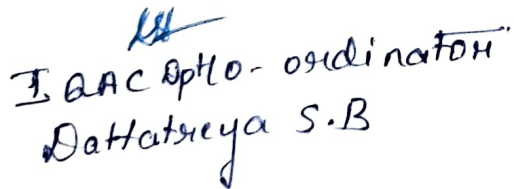 IQAC Opto-ordinator
Dattatreya S.B